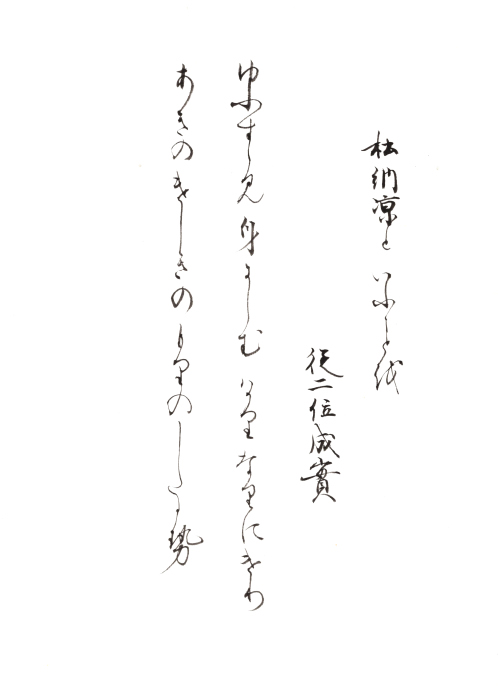 杜納凉といふこと越
従二位成實
ゆふすゝ見身にしむはかりなりにけり
あきのけしきのもりのしたか勢